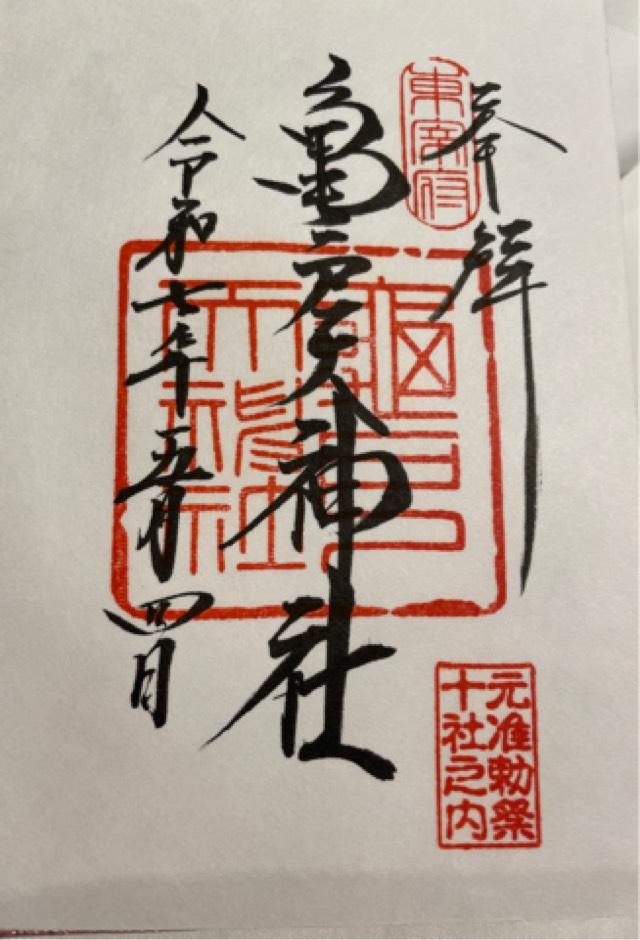 奉拝
東宰府
亀戸天神社
龜戸天神社
令和七年五月四日
元准勅祭
十社之内